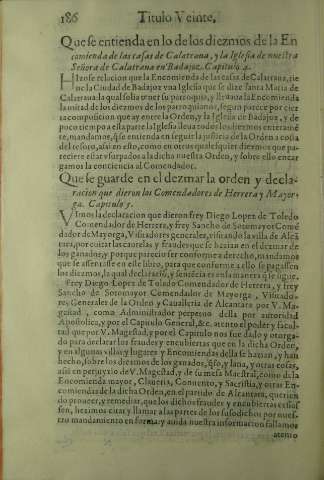 186 Titulo Veinte,
Que se entienda en lo de los diezmos de la En
comienda de las casas de Calatrava, y la Iglesia de nuestra
Señora de Calatrava en Badajoz. Capitulo 4.
Hizose relacion que la Encomienda de las casas de Calatrava, tie
ne en la Ciudad de Badajoz vna Iglesia que se dize santa Maria de
Calatrava, la qual solia tener su parroquia, y llevava la Encomienda
la mitad de los diezmos de los parroquianos, segun parece por cier
ta composicion que ay entre la Orden, y la Iglesia de Badajoz, y de
poco tiempo a esta parte la Iglesia lleva todos los diezmos enteramẽ
te, mandamos, q̃ se entienda en seguir la justicia de la Orden a costa
del tesoro, assi en esto, como en otros qualesquier diezmos que pa-
reciere estar vsurpados a la dicha nuestra Orden, y sobre ello encar
gamos la conciencia al Comendador.
Que se guarde en el dezmar la orden y decla-
racion que dieron los Comendadores de Herrera y Mayor-
ga. Capitulo 5.
Vimos la declaracion que dieron frey Diego Lopez de Toledo
Comendador de Herrera, y frey Sancho de Sotomayor Comẽ
dador de Mayorga, Visitadores generales, visitando la villa de Alcã
tara, por evitar las cautelas y fraudes que se hazian en el dezmar de
los ganados, y porque parecio ser conforme a derecho, mandamos
que se assentasse en este libro, para que conforme a ello se pagassen
los diezmos, la qual declaraciõ, y sentẽcia es en la manera q̃ se sigue.
Frey Diego Lopez de Toledo Comendador de Herrera, y frey
Sancho de Sotomayor Comendador de Mayorga, Visitado-
res Generales de la Orden y Cavalleria de Alcantara por V. Ma-
gestad, como Administrador perpetuo della por autoridad
Apostolica, y por el Capitulo General, &c. atento el poder y facul-
tad que por V. Magestad, y por el Capitulo nos fue dado, y otorga-
do para declarar los fraudes y encubiertas que en la dicha Orden,
y en algunas villas y lugares y Encomiendas della se hazian, y han
hecho, sobre los diezmos de los ganados, q̃so, y lana, y otras cosas,
assi en perjuyzio de V. Magestad, y de su mesa Maestral, como de la
Encomienda mayor, Claveria, Convento, y Sacristia, y otras En-
comiendas de la dicha Orden, en el partido de Alcantara, querien
do proveer, y remediar, que los dichos fraudes y encubiertas cessas
sen, hezimos citar y llamar a las partes de los susodichos por nues-
tro mandamiento en forma: y avida nuestra informacion fallamos
atento